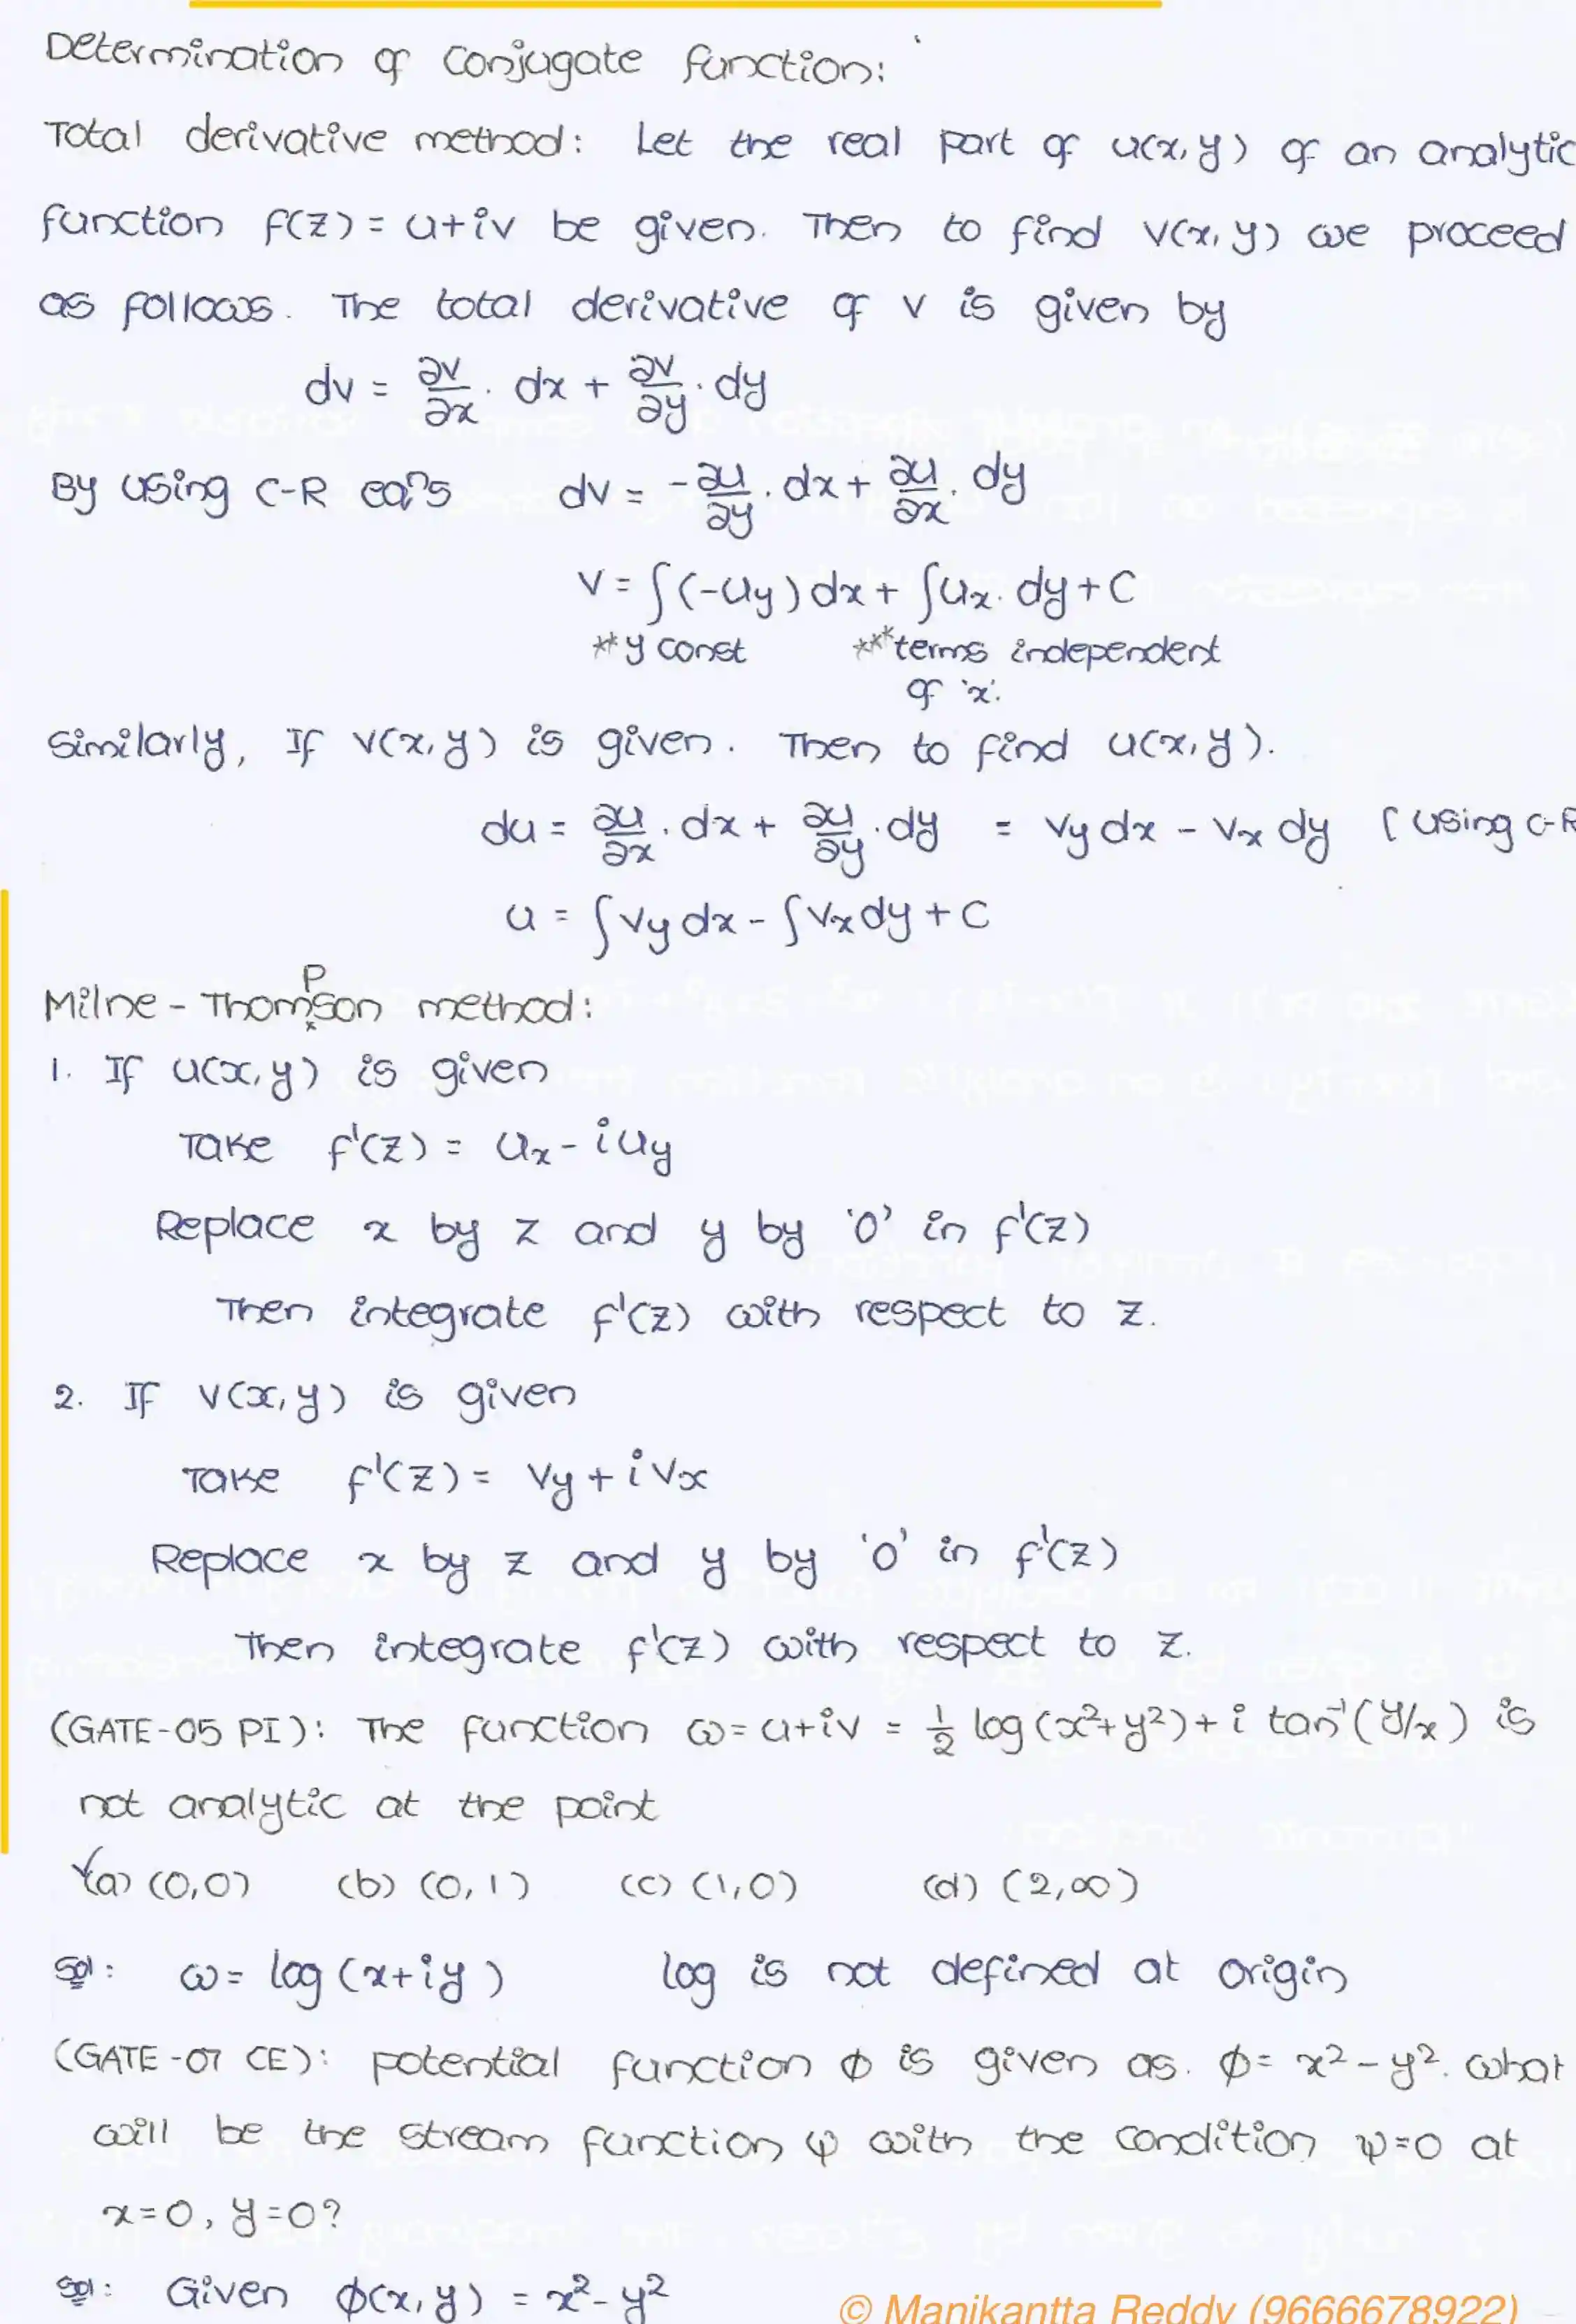 Determination of Conjugate function:
Total derivative method: Let the real part of u(x,y) of an analytic
function f(z) = u+iv be given. Then to find v(x,y) we proceed
as follows. The total derivative of v is given by
dv = ∂v/∂x . dx + ∂v/∂y . dy
By using C-R eqn's dv = -∂u/∂y . dx + ∂u/∂x . dy
v = ∫(-uy) dx + ∫ux. dy + C
**y const ***terms independent
of 'x'.
Similarly, If v(x,y) is given. Then to find u(x,y).
du = ∂u/∂x . dx + ∂u/∂y . dy = vy dx - vx dy (using C-R
u = ∫vy dx - ∫vx dy + C
Milne-Thompson method:
1. If u(x,y) is given
Take f'(z) = ux - iuy
Replace x by z and y by '0' in f'(z)
Then integrate f'(z) with respect to z.
2. If v(x,y) is given
Take f'(z) = vy + ivx
Replace x by z and y by '0' in f'(z)
Then integrate f'(z) with respect to z.
(GATE-05 PI): The function ω = u+iv = 1/2 log(x²+y²) + i tan⁻¹(y/x) is
not analytic at the point
✓(a) (0,0) (b) (0,1) (c) (1,0) (d) (2,∞)
Sol: ω = log(x+iy) log is not defined at origin
(GATE-07 CE): potential function φ is given as. φ = x²-y². what
will be the stream function ψ with the condition ψ=0 at
x=0, y=0?
Sol: Given φ(x,y) = x²-y²
© Manikantta Reddy (9666678922)